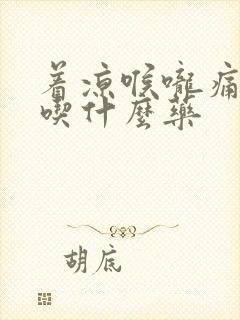 着凉喉嚨痛
喫什麼藥
胡底